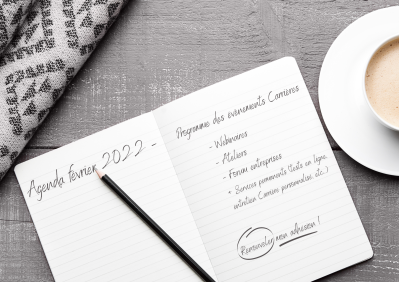 Agenda février 2022 -
Programme des évènements Carrières
- Webinaires
- Ateliers
- Forum entreprises
+ Services permanents (tests en ligne,
entretien Carrière personnalisé, etc.)
Renouveler mon adhésion !